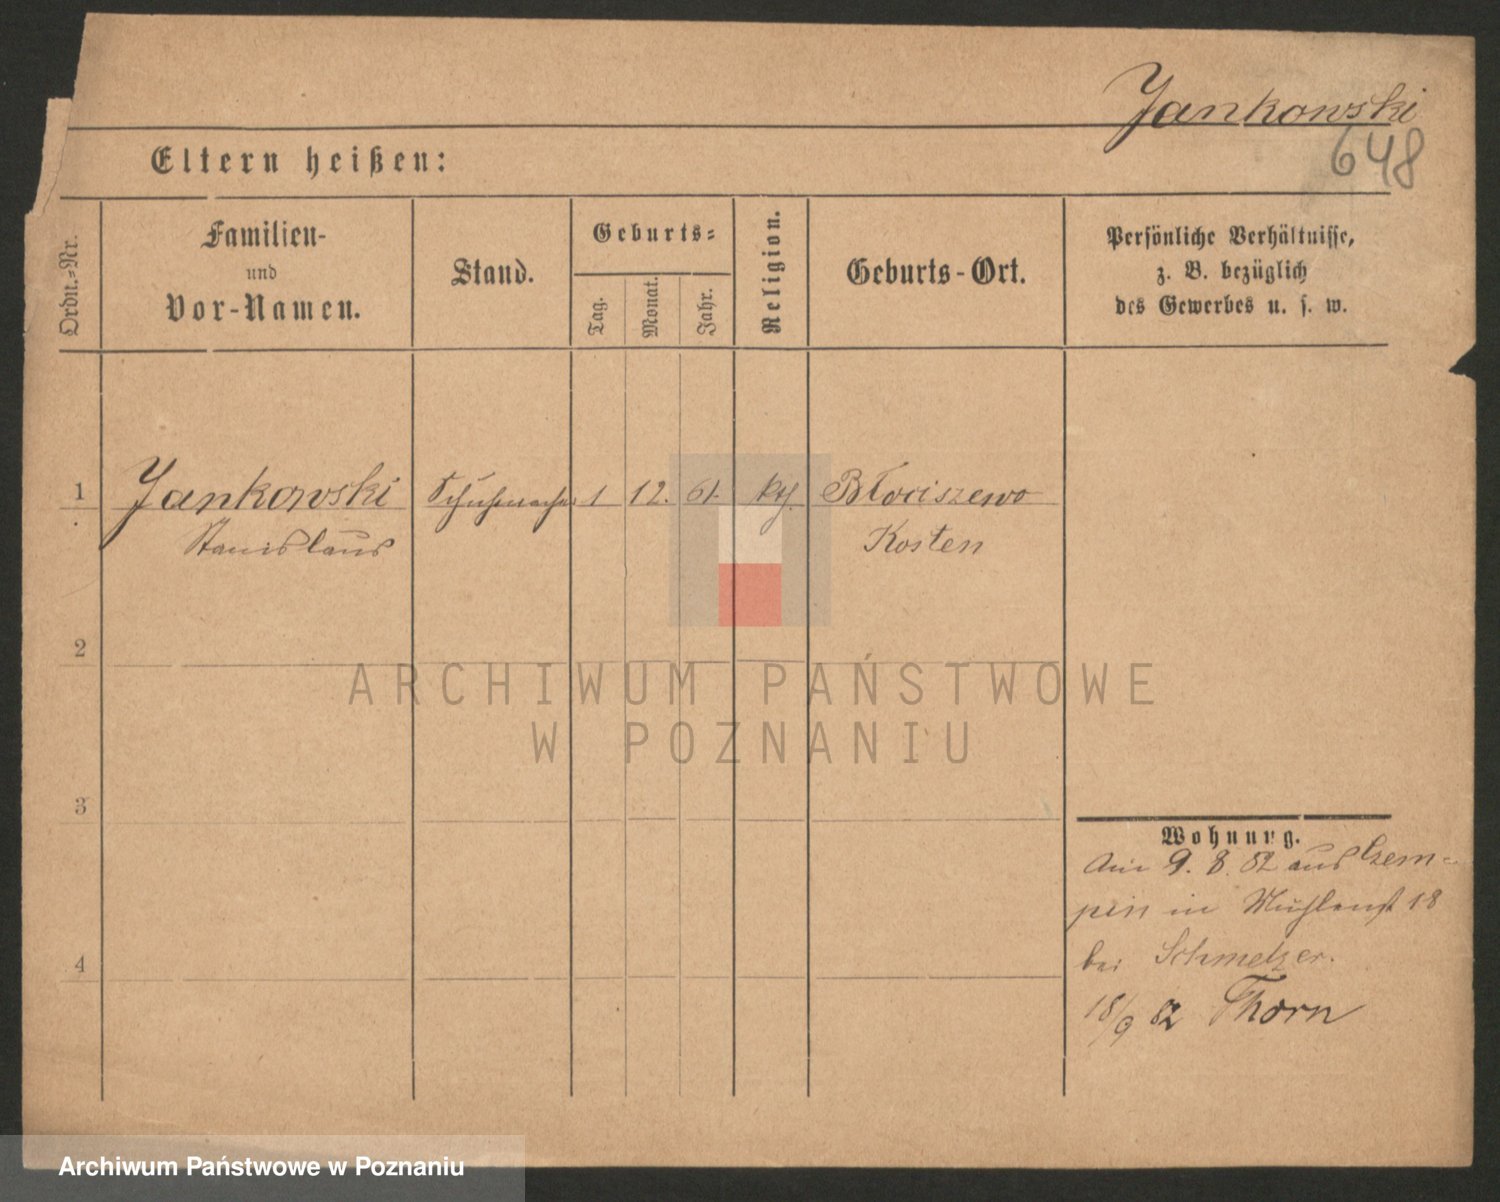 Jankowski
648
Eltern heißen:
Ordn.-Nr.
Familien-
und
Vor-Namen.
Stand.
Geburts-
Tag.
Monat.
Jahr.
Religion.
Geburts-Ort.
Persönliche Verhältnisse,
z. B. bezüglich
des Gewerbes u. s. w.
1 Jankowski Schuhmacher 1 12. 61. kth. Błociszewo
Stanislaus Kosten
2
3
4
Wohnung.
Am 9. 8. 82 aus Czem-
pin in Mühlenst 18
bei Schmelzer.
18/9 82 Thorn
ARCHIWUM PAŃSTWOWE
W POZNANIU
Archiwum Państwowe w Poznaniu